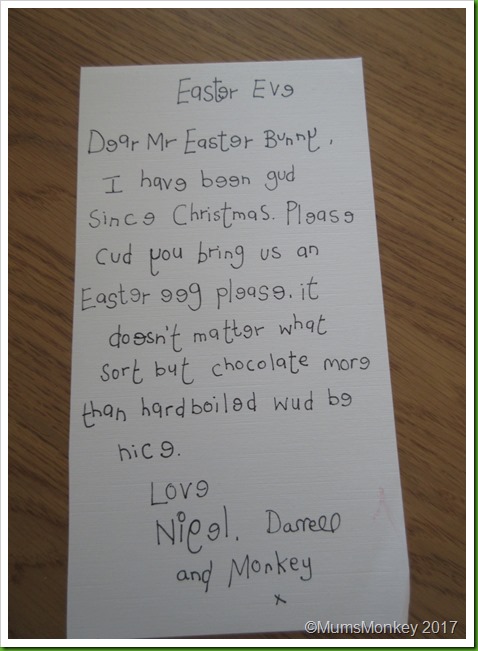 Easter Eve
Dear Mr Easter Bunny,
I have been gud
since Christmas. Please
cud you bring us an
Easter eeg please. it
doesn't matter what
sort but chocolate more
than hardboiled wud be
nice.
Love
Nigel. Darrell
and Monkey
x
©MumsMonkey 2017